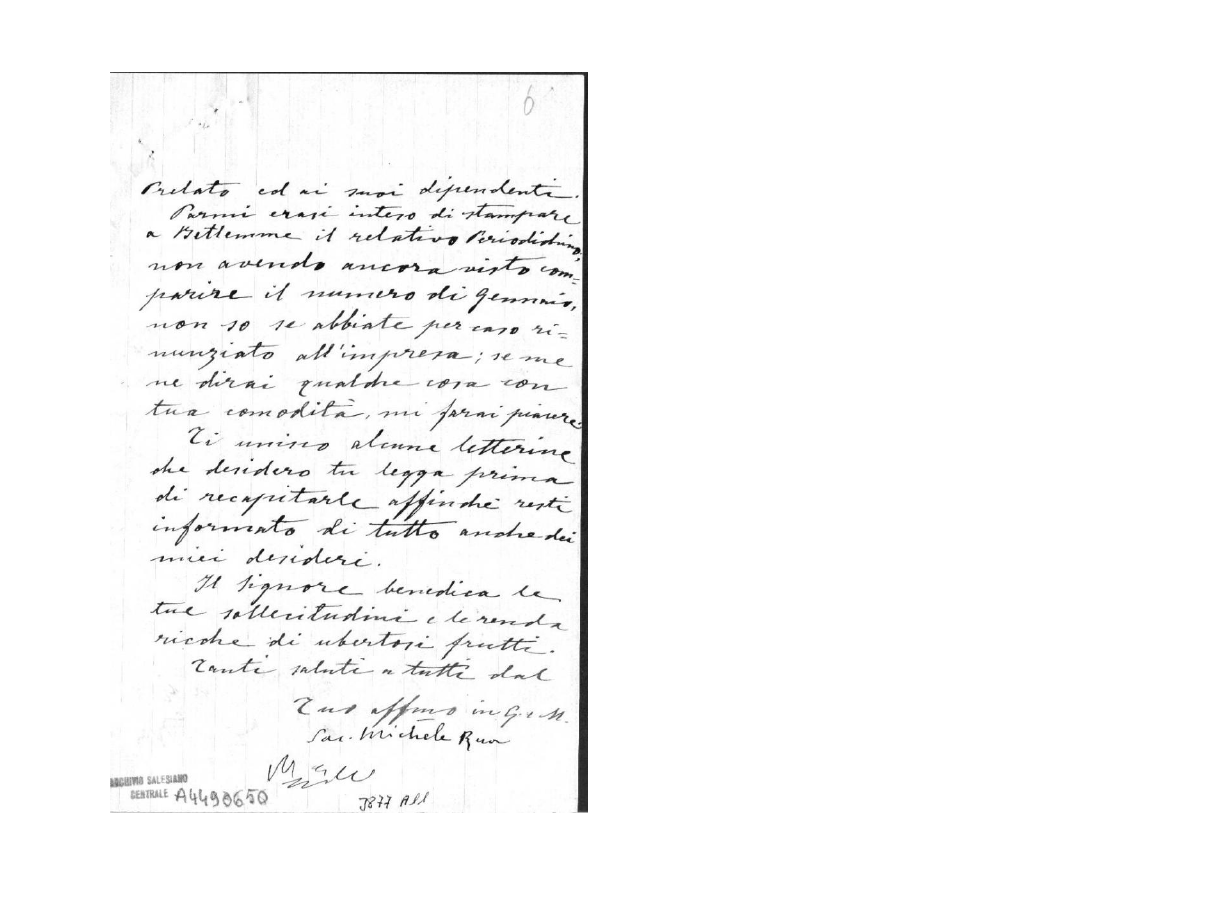 6
Prelato ed ai suoi dipendenti.
Parmi erasi inteso di stampare
a Betlemme il relativo Periodichino,
non avendo ancora visto com=
parire il numero di Gennaio,
non so se abbiate per caso ri=
nunziato all'impresa; se me
ne dirai qualche cosa con
tua comodità, mi farai piacere.
Ti unisco alcune letterine
che desidero tu legga prima
di recapitarle affinchè resti
informato di tutto anche dei
miei desideri.
Il Signore benedica le
tue sollecitudini e le renda
ricche di ubertosi frutti.
Tanti saluti a tutti dal
Tuo affmo in G. e M.
Sac. Michele Rua
ARCHIVIO SALESIANO
CENTRALE A4490650
J877 All